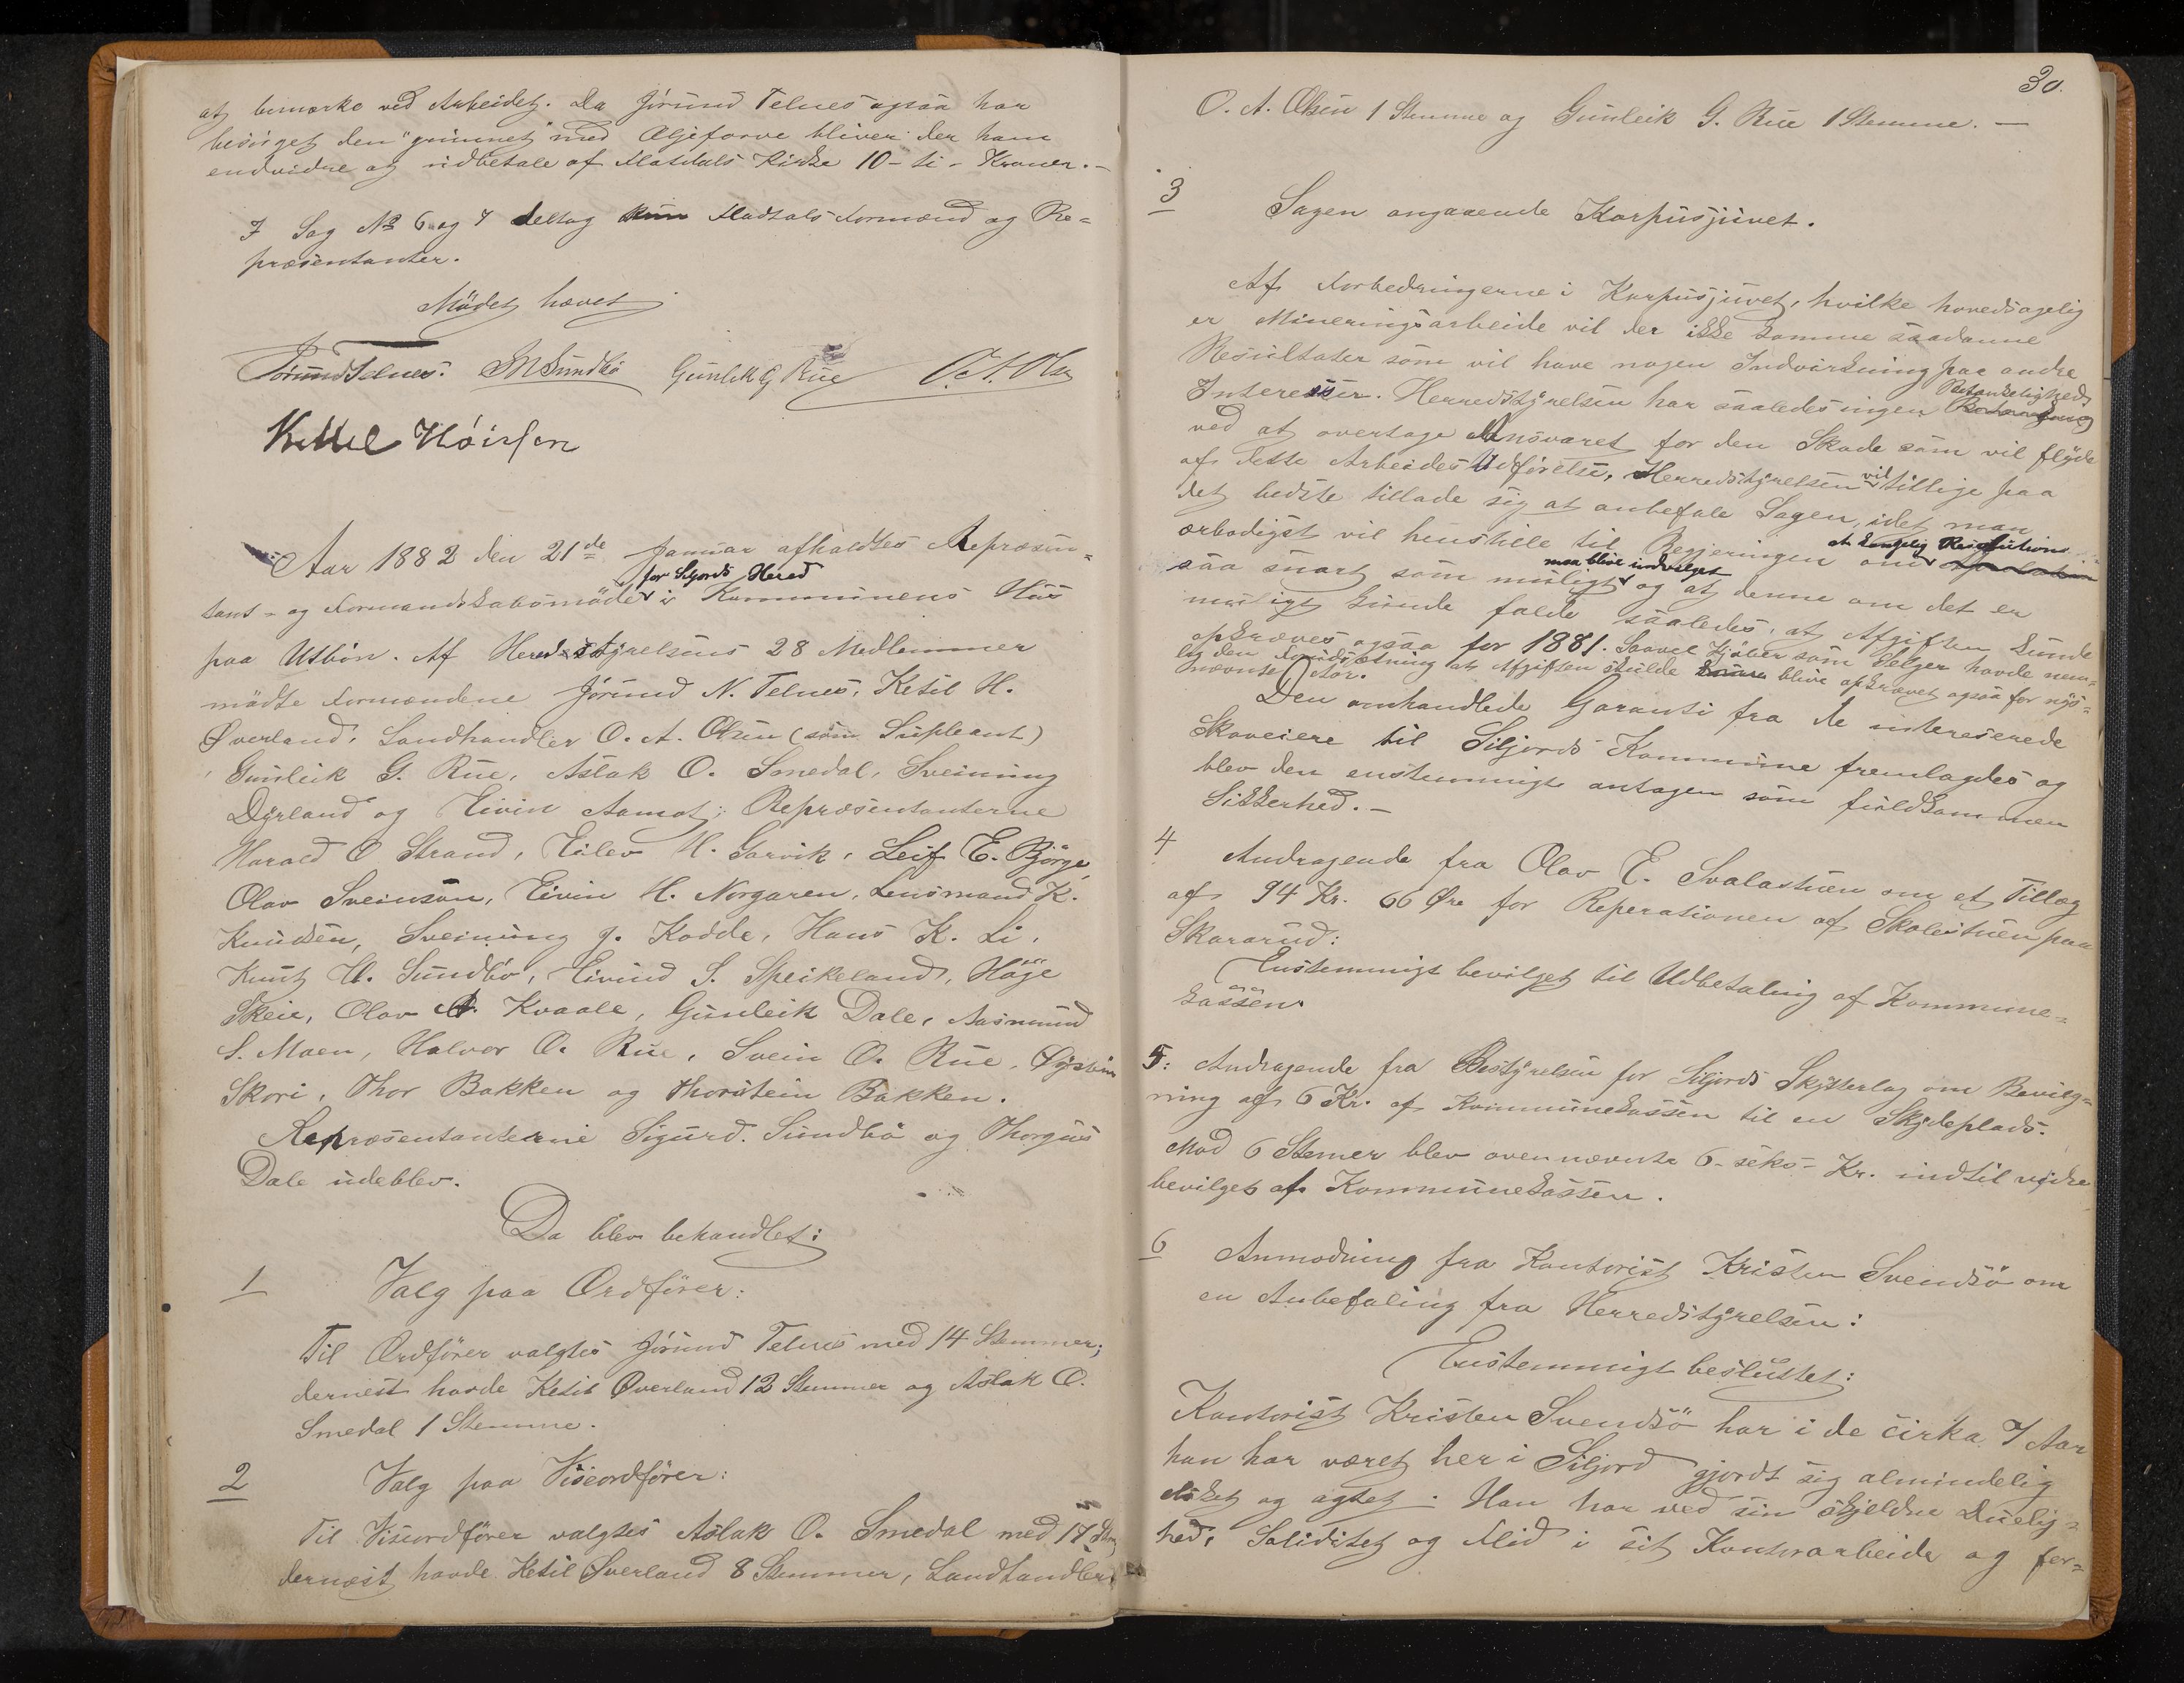 at bemærke ved Arbeidet. Da Jörund Telnes ogsaa har
besörget den "grunnet" med Oljefarve bliver der ham
endvidre at udbetale af Flatdals Kirke 10 - ti - Kroner. -
I Sag No 6 og 7 deltog kun Fladtals Formænd og Re=
præsentanter.
Mödet hævet
Jörund Telnes. K H Sundbö Gunleik G Rue O. A. Olsen
Kittil Höirsen
Aar 1882 den 21de Januar afholdtes Repræsen=
tant- og Formandskabsmöde for Siljords Hered i Kommunens Hus
paa Utbön. Af Heredsstyrelsens 28 Medlemmer
mödte Formændene Jörund N. Telnes, Ketil H.
Øverland, Landhandler O. A. Olsen (som Supleant)
Gunleik G. Rue, Aslak O. Smedal, Sveinung
Dyrland og Eivin Aamot; Repræsentanterne
Harald O Strand, Eilev H. Garvik, Leif E. Björge,
Olav Sveinsön, Eivin H. Norgaren, Lensmand K.
Knudsen, Sveinung J. Kodde, Hans K. Li,
Knut H. Sundbö, Eivind S. Speikeland, Häge
Skeie, Olav A. Kvaale, Gunleik Dale, Aasmund
S. Moen, Halvor O. Rue, Svein O. Rue, Øystein
Skori, Thor Bakken og Thorstein Bakken.
Repræsentanterne Sigurd Sundbö og Thorgus
Dale udeblev.
Da blev behandlet:
1 Valg paa Ordförer:
Til Ordförer valgtes Jörund Telnes med 14 Stemmer;
dernest havde Ketil Øverland 12 Stemmer og Aslak O.
Smedal 1 Stemme.
2 Valg paa Viseordförer:
Til Viseordförer valgtes Aslak O. Smedal med 17 Stm
dernæst havde Ketil Øverland 8 Stemmer, Landhandler
30.
O. A. Olsen 1 Stemme og Gunleik G. Rue 1 Stemme. -
3 Sagen angaaende Karpusjuvet.
Af Forbedringerne i Karpusjuvet, hvilke hovedsagelig
er Mineringsarbeide vil der ikke komme saadanne
Resultater som vil have nogen Indvirkning paa andre
Interesser. Herredsstyrelsen har saaledes ingen Betænkelighed
ved at overtage Ansvaret for den Skade som vil flyde
af dette Arbeides Udförelse, Herredsstyrelsen vil tillige paa
det bedste tillade sig at anbefale Sagen, idet man
ærbödigst vil henstille til Regjeringen om at kongelig Resolution
saa snart som muligt maa blive indvirget og at denne om det er
muligt kunde falde saaledes, at Afgiften kunde
opkræves ogsaa for 1881. Saavel Kjöber som Selger havde nem=
lig den Forudsætning at Afgiften skulde blive opkrævet ogsaa for nys=
nævnte Aar.
Den omhandlede Garanti fra de interesserede
Skoveiere til Siljords Kommune fremlagdes og
blev den enstemmigt antagen som fuldkommen
Sikkerhed. -
4 Andragende fra Olav E. Svalastuen om et Tillæg
af 94 Kr. 66 Øre for Reperationen af Skolestuen paa
Skorarud:
Enstemmigt bevilget til Udbetaling af Kommune=
kassen.
5: Andragende fra Bestyrelsen for Siljords Skytterlag om Bevilg=
ning af 6 Kr. af Kommunekassen til en Skydeplads.
Mod 6 Stemer blev ovennævnte 6 - seks - Kr. indtil vidre
bevilget af Kommunekassen.
6 Anmodning fra Kontorist Kristen Svendsö om
en Anbefaling fra Herredstyrelsen:
Enstemmigt besluttet:
Kontorist Kristen Svendsö har i de cirka 7 Aar
han har været her i Siljord gjordt sig almindelig
elsket og agtet. Han har ved sin skjeldne Duelig=
hed, Soliditet og Flid i sit Kontorarbeide og for=